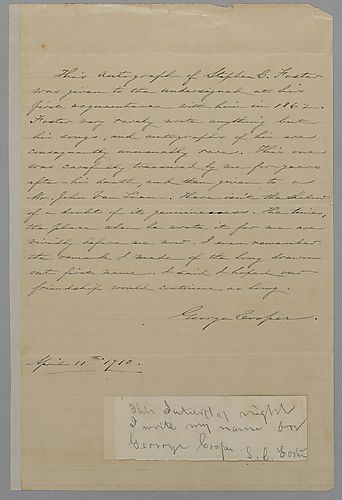 This Autograph of Stephen C. Foster
was given to the undersigned at his
first acquaintance with him in 1862.
Foster very rarely wrote anything but
his songs, and autographs of him are
consequently unusually rare. This one
was carefully treasured by me for years
after his death, and then given to a
Mr. John Van
of a doubt of its genuineness. The time,
the place when he wrote it for me are
vividly before me now. I even remember
the remark I made of the long drawn
out first name. I said I hoped our
friendship would continue as long.
George Cooper.
April 11th 1910.
This Saturday night
I write my name for
George Cooper
S. C. Foster